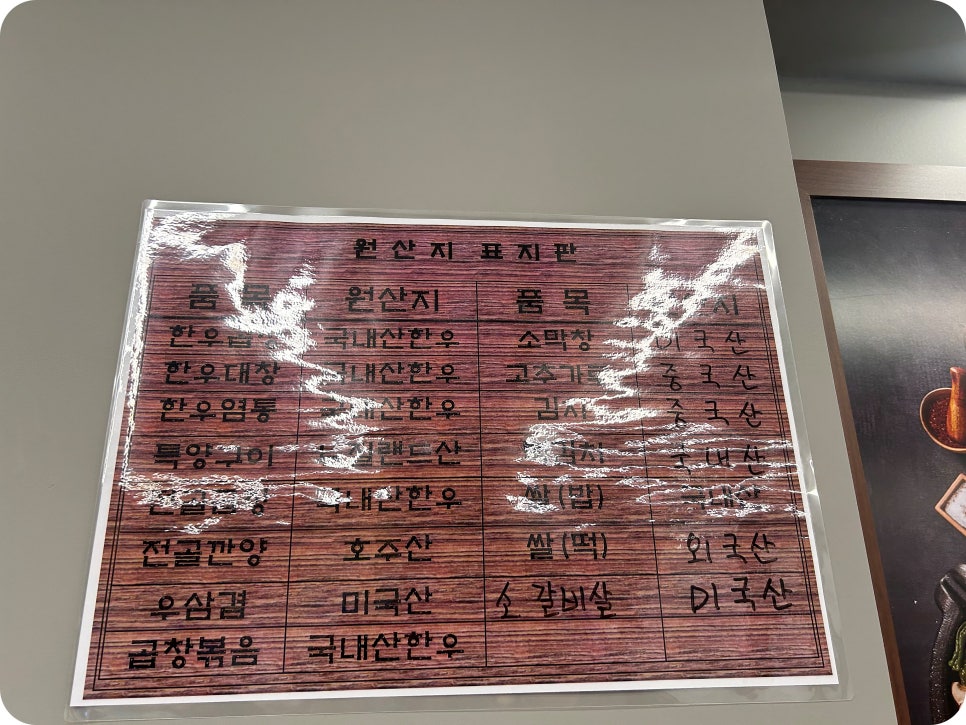 원산지 표지판
품 목 원산지 품 목
한우곱창 국내산한우 소막창 미국산
한우대창 국내산한우 고추가루 중국산
한우염통 국내산한우 중국산
특양구이 뉴질랜드산 국내산
국내산한우 쌀(밥) 국내산
전골깐양 호주산 쌀(떡) 외국산
우삼겹 미국산 소갈비살 미국산
곱창볶음 국내산한우